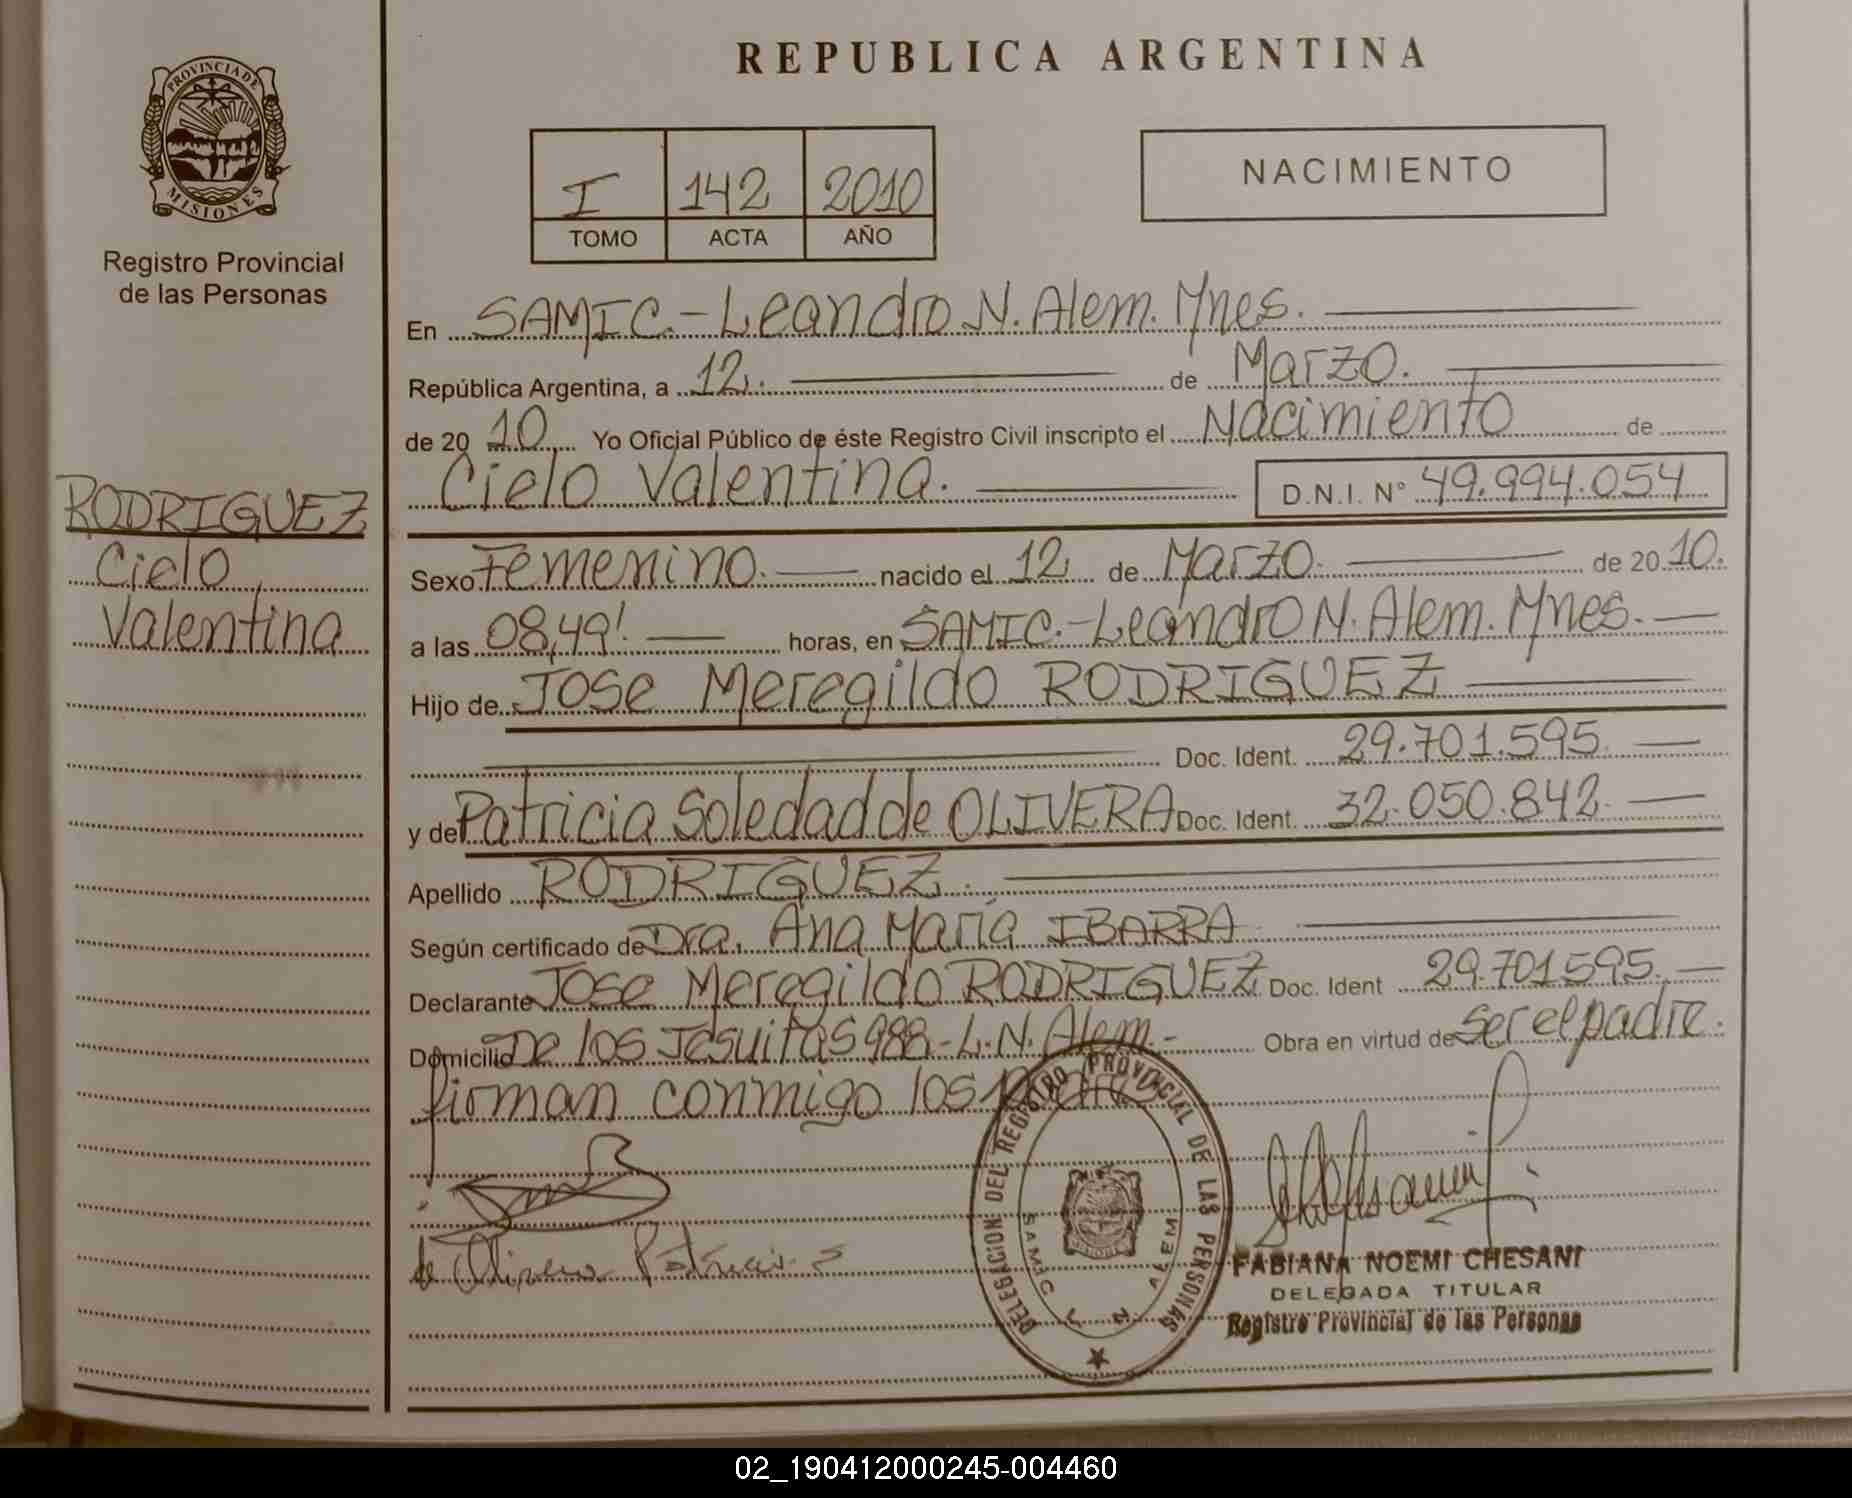 PROVINCIA DE
MISIONES
Registro Provincial
de las Personas
RODRIGUEZ
Cielo
Valentina
REPUBLICA ARGENTINA
I 142 2010
TOMO ACTA AÑO
NACIMIENTO
En SAMIC.-Leandro N. Alem. Mnes.
República Argentina, a 12. de Marzo.
de 20 10 Yo Oficial Público de éste Registro Civil inscripto el Nacimiento de
Cielo Valentina. D.N.I. N° 49.994.054
Sexo Femenino. nacido el 12 de Marzo. de 20 10.
a las 08,49'. horas, en SAMIC.-Leandro N. Alem. Mnes.
Hijo de Jose Meregildo RODRIGUEZ
Doc. Ident. 29.701.595
y de Patricia Soledad de OLIVERA Doc. Ident. 32.050.842.
Apellido RODRIGUEZ.
Según certificado de Dra. Ana María IBARRA
Declarante Jose Meregildo RODRIGUEZ Doc. Ident 29.701595.
Domicilio De los Jesuitas 988-L.N. Alem.- Obra en virtud de ser el padre.
firman conmigo los
de Olivera Patricia S
DELEGACION DEL REGISTRO PROVINCIAL DE LAS PERSONAS
SAMIC L. N. ALEM
FABIANA NOEMI CHESANI
DELEGADA TITULAR
Registro Provincial de las Personas
02_190412000245-004460